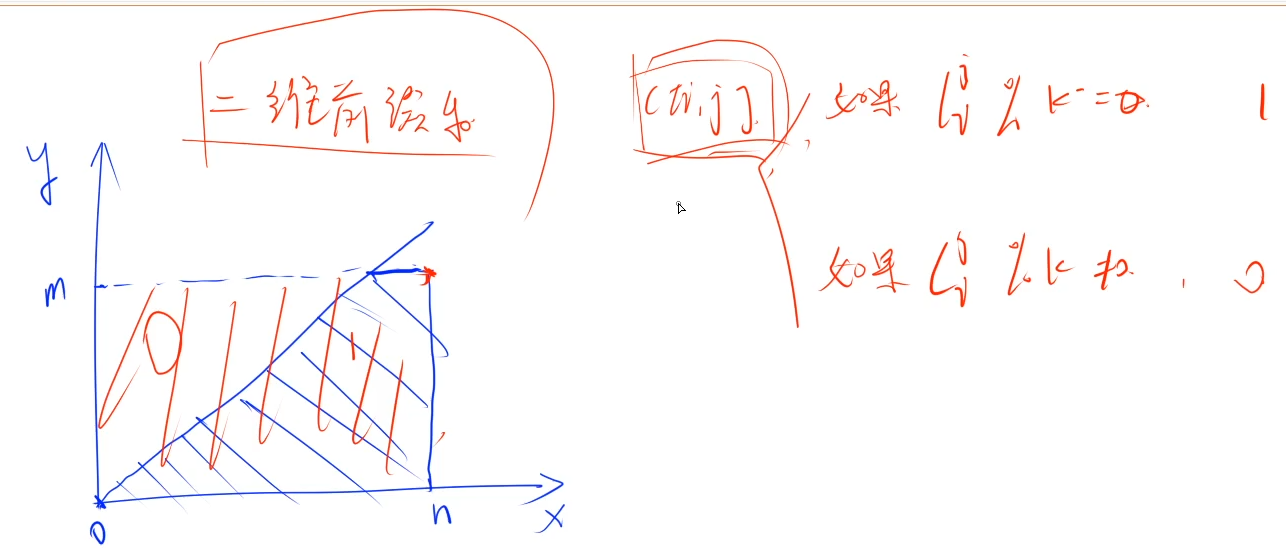 二维前缀和
C[i,j]. 如果 C_i^j % k == 0. 1
如果 C_i^j % k ≠ 0. 0
y
m
0
1
0
n
x